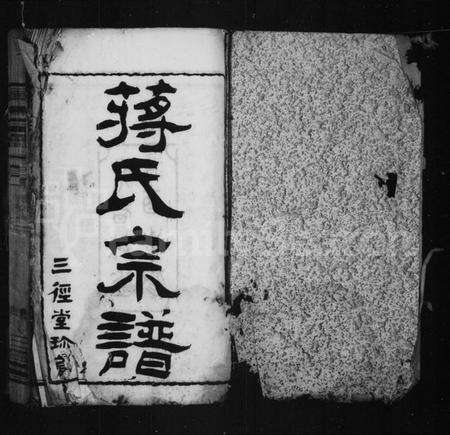 蔣氏宗譜
三徑堂珍藏